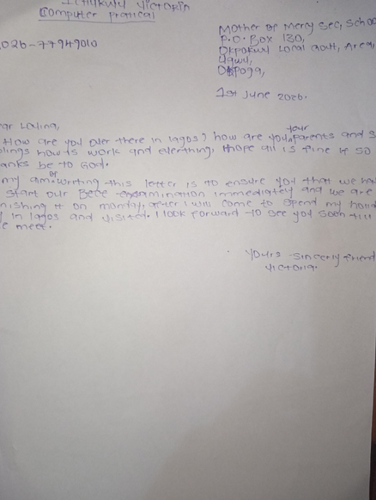 Victoria
Computer pratical
2026-77949010
Mother of Mercy Sec, School
P.O. Box 130,
Okpokwu Local Govt, Area,
Ugwu,
Okpoga,
1st June 2026.
How are you over there in lagos? how are your parents and
how is work and everthing, I hope all is fine if so
be to God.
my aim of writing this letter is to ensure you that we
start our Bece Examination immediately and we are
it on monday, after I will come to spend my
in lagos and visited. I look forward to see you soon till
meet.
Yours sincerly friend
Victoria.